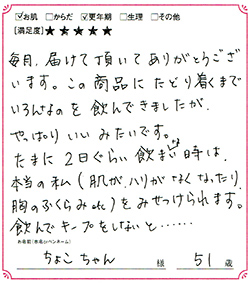 ☑お肌 □からだ ☑更年期 □生理 □その他
[満足度] ★・★・★・★・★
毎月、届けて頂いてありがとうござい
ます。この商品にたどり着くまで
いろんなのを飲んできましたが、
やっぱりいいみたいです。
たまに2日ぐらい飲まない時は、
本当の私(肌が、ハリがなくなったり、
胸のふくらみetc)をみせつけられます。
飲んでキープをしないと……
お名前(本名orペンネーム)
ちょこちゃん 様 51 歳